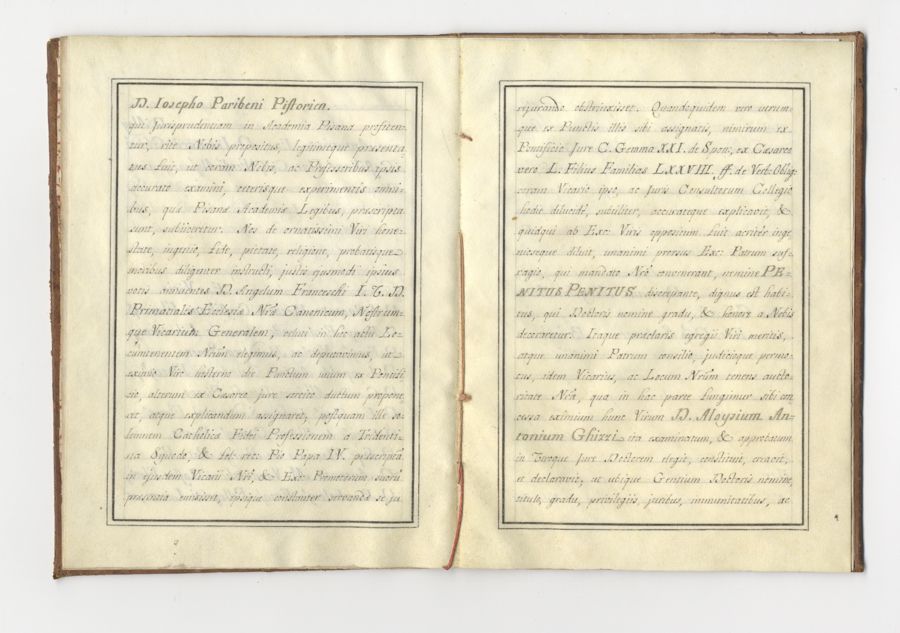 D. Iosepho Paribeni Pistorien.
qui Jurisprudentiam in Academia Pisana profiten-
tur, rite Nobis propositus, legitimeque præsenta
tus fuit, ut coram Nobis, ac Professoribus ipsis
accurato examini, ceterisque experimentis omni-
bus, quæ Pisanæ Academiæ Legibus, præscripta
sunt, subiiceretur. Nos de ornatissimi Viri hone-
state, ingenio, fide, pietate, religione, probatisque
moribus diligenter instructi, justis ejusmodi ipsius
votis annuentes D. Angelum Franceschi I. V. D.
Primatialis Ecclesiæ Nræ Canonicum, Nostrum-
que Vicarium Generalem, veluti in hoc actu Lo-
cumtenentem Nrum elegimus, ac deputavimus, ut
eximio Viro hesterno die Punctum unum ex Pontifi-
cio, alterum ex Cæsareo jure sorcito ductum propone
ret, atque explicandum assignaret, postquam ille so-
lemnem Catholicæ Fidei Professionem a Tridenti-
na Synodo, & fel: rec: Pio Papa IV. præscriptā
in ejusdem Vicarii Nri, & Exc: Promotorum suorū
præsentia emisisset, ipsique constanter servandæ se ju
rejurando obstrinxisset. Quandoquidem vero utrum-
que ex Punctis illis sibi assignatis, nimirum ex
Pontificio Jure C. Gemma XXI. de Spon., ex Cæsareo
vero L. Filius Familias LXXVIII. ff. de Verb: Oblig:
coram Vicario ipso, ac Juris Consultorum Collegio
hodie dilucide, subtiliter, accurateque explicavit, &
quidquid ab Exc: Viris oppositum fuit acriter inge
nioseque diluit, unanimi prorsus Exc: Patrum suf-
fragio, qui mandato Nro convenerant, nemine PE-
NITUS PENITUS discrepante, dignus est habi-
tus, qui Doctoris nomine gradu, & honore a Nobis
decoraretur. Itaque præclaris egregii Viri meritis,
atque unanimi Patrum consilio, judicioque permo-
tus, idem Vicarius, ac Locum Nrum tenens aucto-
ritate Nra, qua in hac parte fungimur sibi con
cessa eximium hunc Virum D. Aloysium An-
tonium Ghizzi ita examinatum, & approbatum
in Utroque Jure Doctorem elegit, constituit, creavit,
et declaravit, ut ubique Gentium Doctoris nomine,
titulo, gradu, privilegiis, juribus, immunitatibus, ac